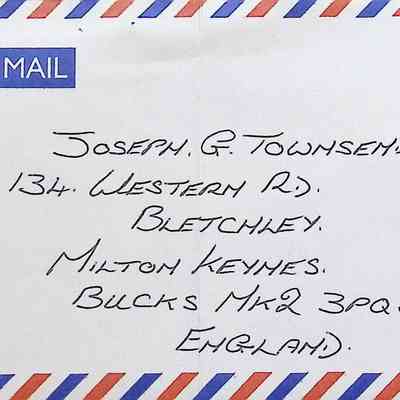 MAIL
JOSEPH. G. TOWNSEN
134. WESTERN RD.
BLETCHLEY.
MILTON KEYNES.
BUCKS MK2 3PQ.
ENGLAND.